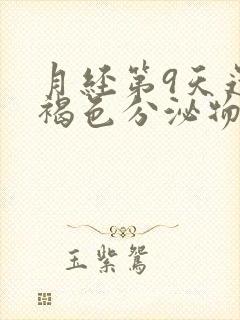 月经第9天还
褐色分泌物
玉紫鸳